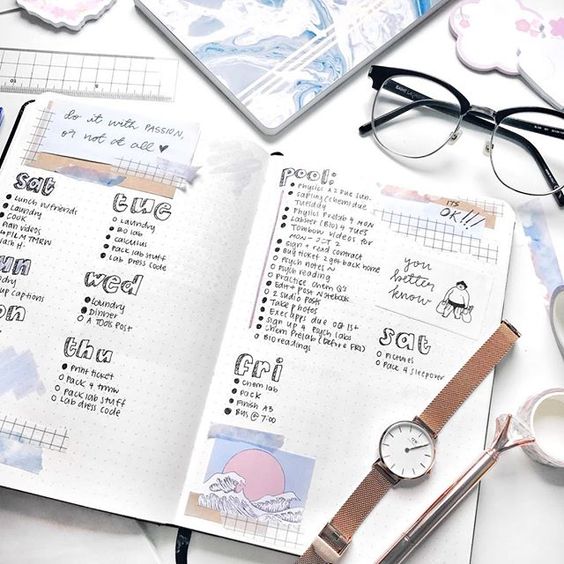 do it with PASSION,
or not at all ♥
sat
Lunch w/friends
Laundry
COOK
Plan videos
FILM TMRW
Laundry
up captions
tue
Laundry
Bio lab
calculus
Pack lab stuff
Lab Dress code
wed
Laundry
Dinner
A TOOLS POST
thu
Print ticket
Pack 4 tmrw
Pack lab stuff
Lab dress code
pool:
Physics A2 Due Sun.
Sapling/Chem due
Tuesday
Physics Prelab 4 MON
Labster (BIO) 4 TUES
Tombow videos for
MON - OCT 2
Sign + read contract
Buy ticket 2 get back home
Psych notes
Psych reading
Practice Chem Q2
Edit + Post Notebook
2 Studio Posts
Take photos
Exec apps due Oct 15th
Sign up 4 Psych labs
Chem Prelab (before FRI)
BIO readings
fri
Chem lab
Pack
Finish A3
Bus @ 7:00
IT'S
OK!!!
you
better
know
sat
Pictures
Pack 4 sleepover